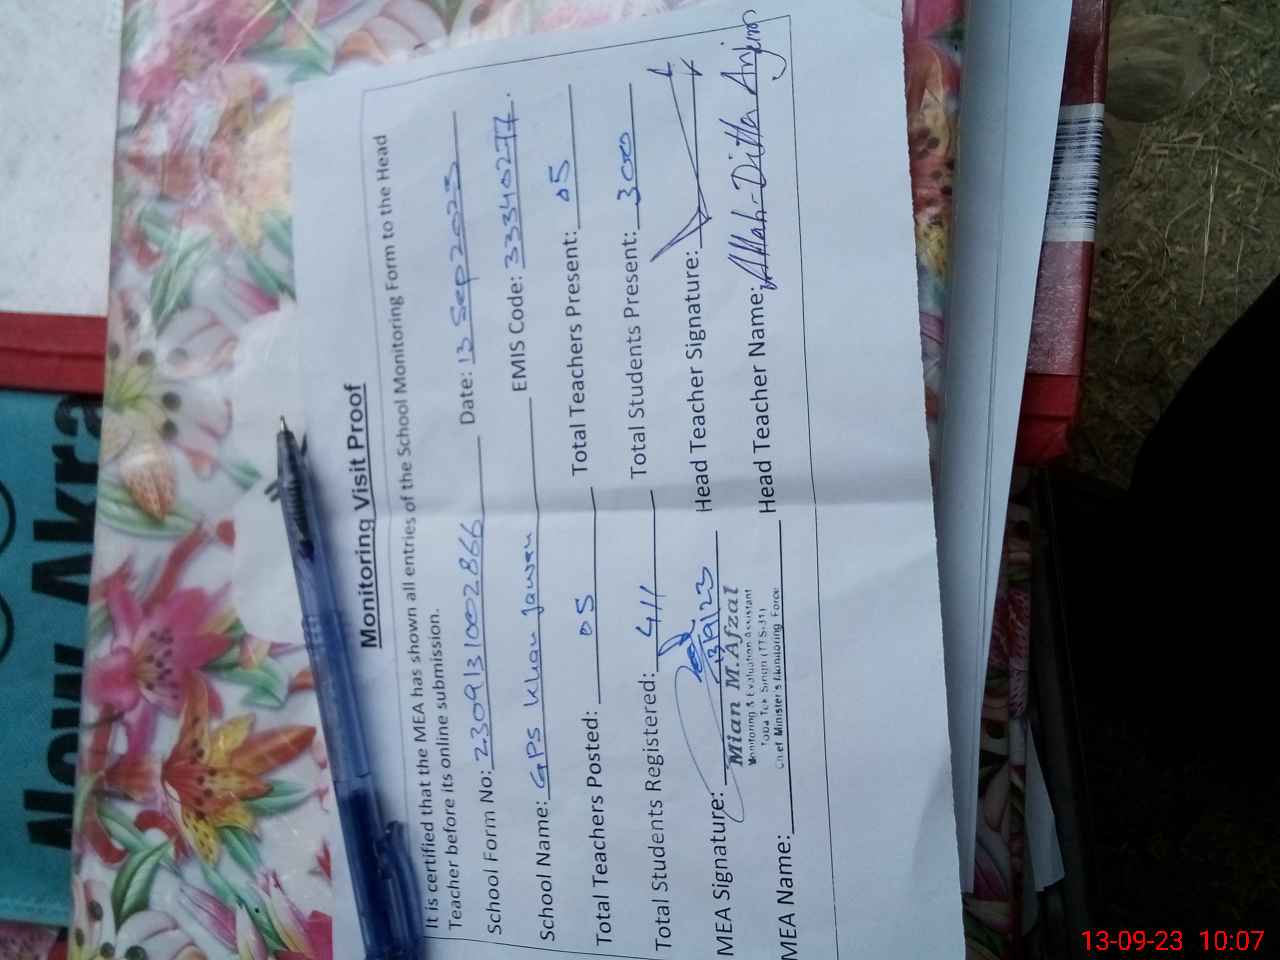 Monitoring Visit Proof
It is certified that the MEA has shown all entries of the School Monitoring Form to the Head
Teacher before its online submission.
School Form No: 2309131002866 Date: 13 Sep 2023
School Name: GPS Khan Jawen EMIS Code: 33340277.
Total Teachers Posted: 05 Total Teachers Present: 05
Total Students Registered: 411 Total Students Present: 300
MEA Signature: 13/9/23 Head Teacher Signature:
Mian M.Afzal
Monitoring & Evaluation Assistant
Toba Tek Singh (TTS-31)
Chief Minister's Monitoring Force
MEA Name: Head Teacher Name: Allah-Ditta Anjum
New Akra
13-09-23 10:07